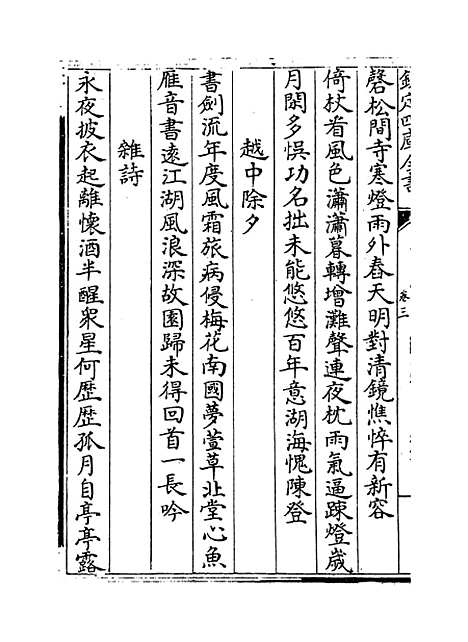 欽定四庫全書
卷三
磬松間寺寒燈雨外舂天明對清鏡憔悴有新容
倚杖看風色瀟瀟暮轉增灘聲連夜枕雨氣逼踈燈歲
月閑多悞功名拙未能悠悠百年意湖海愧陳登
越中除夕
書劍流年度風霜旅病侵梅花南國夢萱草北堂心魚
雁音書遠江湖風浪深故園歸未得回首一長吟
雜詩
永夜披衣起離懷酒半醒衆星何歴歴孤月自亭亭露